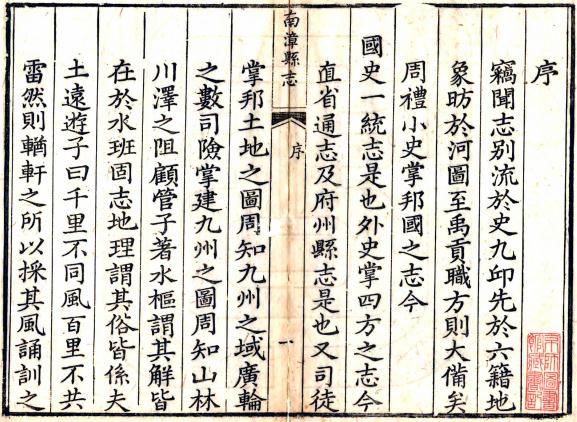 序
竊聞志別流於史九邱先於六籍地
象昉於河圖至禹貢職方則大備矣
周禮小史掌邦國之志今
國史一統志是也外史掌四方之志今
直省通志及府州縣志是也又司徒
南漳縣志
序
一
掌邦土地之圖周知九州之域廣輪
之數司險掌建九州之圖周知山林
川澤之阻顧管子著水樞謂其解皆
在於水班固志地理謂其俗皆係夫
土遠遊子曰千里不同風百里不共
雷然則輶軒之所以採其風誦訓之